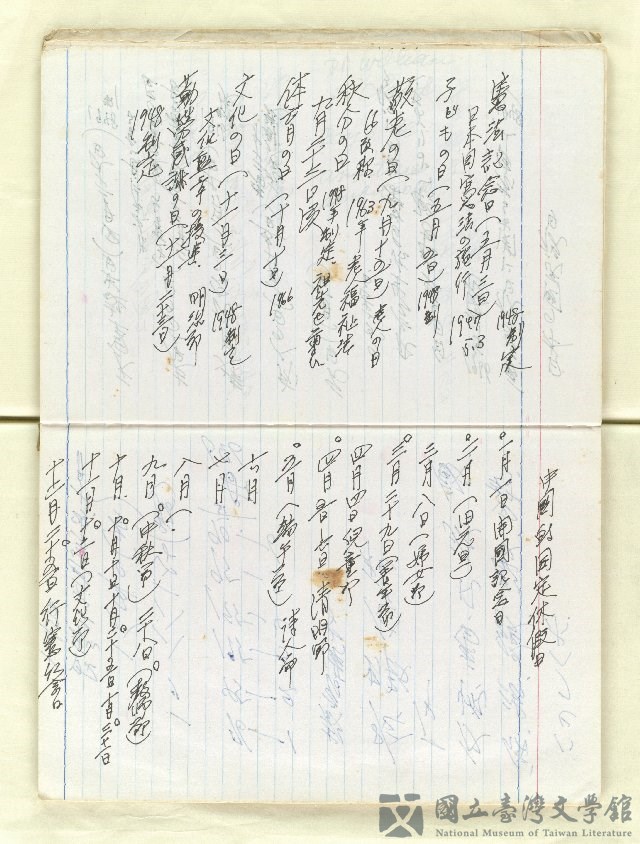 憲法記念日(五月三日) 1948制定
日本国憲法の施行 1947 5.3
子どもの日(五月五日) 1948制
敬老の日(九月十五日) 老の日
に改称 1963年老人福祉法
秋分の日 1948年制定 祖先を尊ひ
九月二十三日頃
体育の日(十月十日) 1966
文化の日(十一月三日) 1948制定
文化勲章の授与 明治節
勤労感謝の日(十一月二十三日)
1948制定
中國的国定休假日
一月一日 開國記念日
二月(旧元旦)
三月八日(婦女节)
三月二十九日(青年节)
四月四日 児童节
四月五日 清明節
五月(端午节) 詩人節
六月
七月
八月(
九月(中秋节) 二十八日(教師節)
十月 十月十日 十月二十五日 十月三十一日
十一月十二日(文化节)
十二月二十五日 行憲紀念日
國立臺灣文學館
National Museum of Taiwan Literature